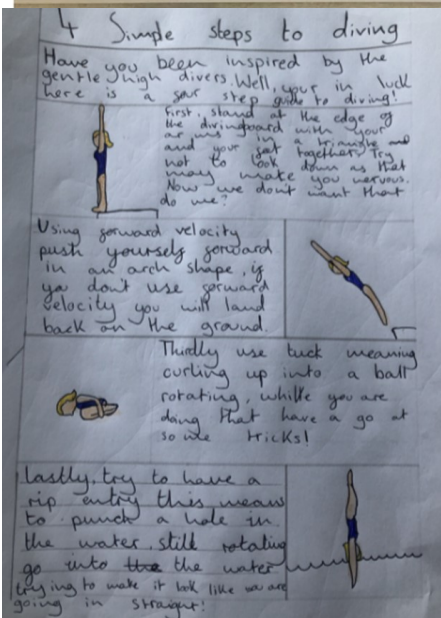 4 Simple steps to diving
Have you been inspired by the
gentle high divers. Well, your in luck
here is a four step guide to diving!
First, stand at the edge of
the divingboard with your
arms in a triangle and
and your feet together. Try
not to look down as that
may make you nervous.
Now we don't want that
do we?
Using forward velocity
push yourself forward
in an arch shape, if
you don't use forward
velocity you will land
back on the ground.
Thirdly use tuck meaning
curling up into a ball
rotating, while you are
doing that have a go at
some tricks!
Lastly, try to have a
rip entry this means
to punch a hole in
the water. still rotating
go into the the water
trying to make it look like you are
going in straight!